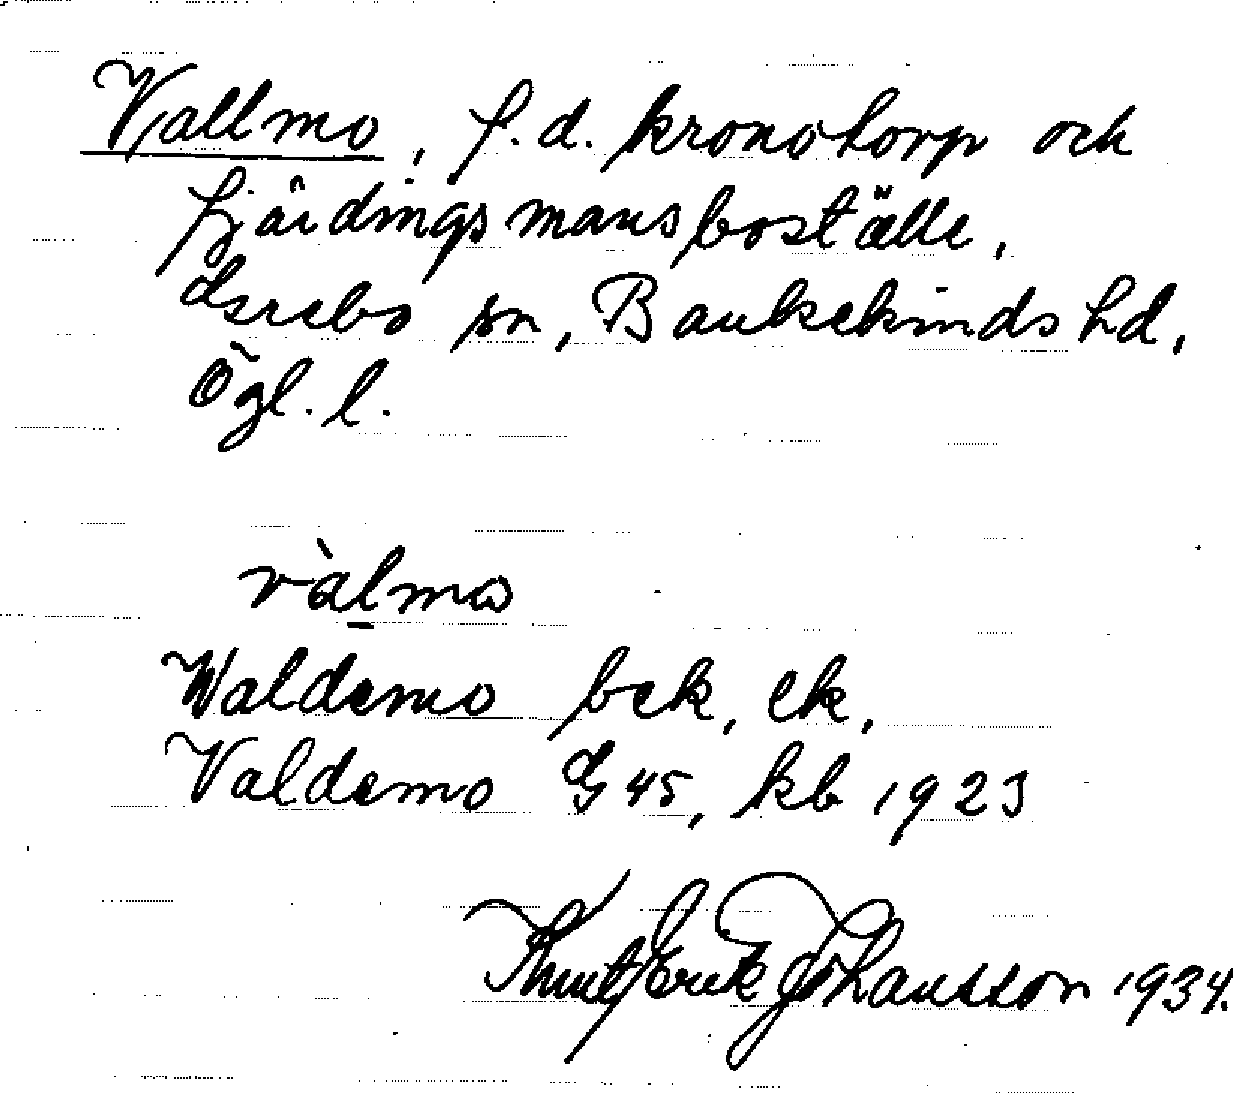 Vallmo, f.d. kronotorp och
fjärdingsmansboställe,
Grebo sn, Bankekinds hd,
Ögl. l.
vàlmo
Waldemo bek, ek,
Valdemo G 45, kb 1923
Knut Erik Johansson 1934.